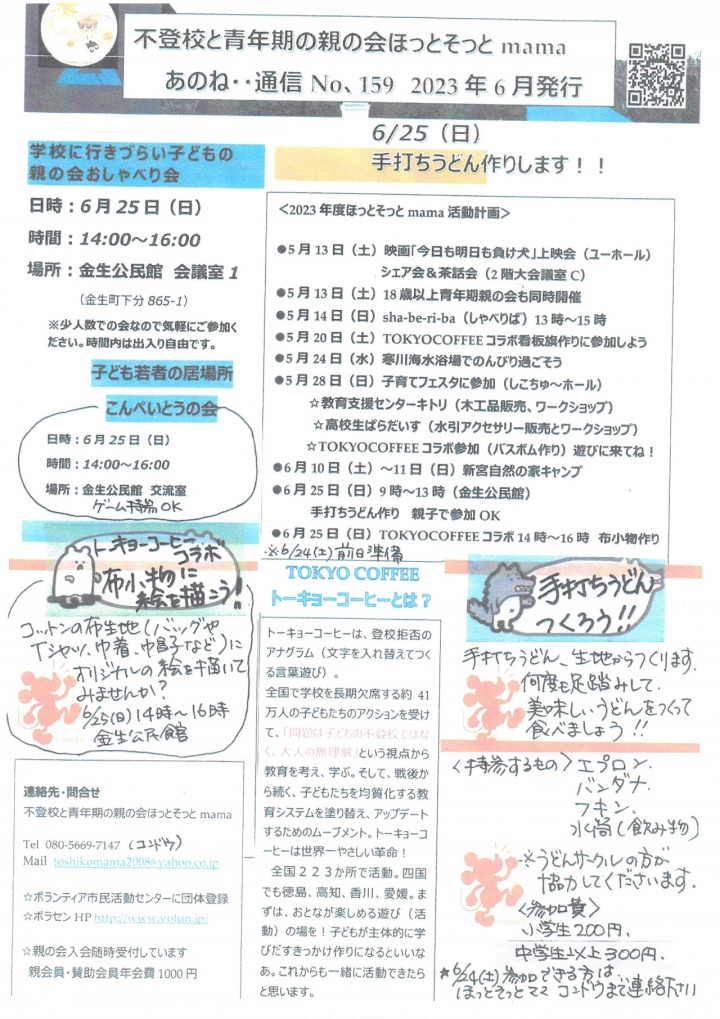 不登校と青年期の親の会ほっとそっと mama
あのね‥通信 No、159 2023 年 6 月発行
学校に行きづらい子どもの
親の会おしゃべり会
日時：6 月 25 日（日）
時間：14:00～16:00
場所：金生公民館 会議室 1
（金生町下分 865-1）
※少人数での会なので気軽にご参加く
ださい。時間内は出入り自由です。
子ども若者の居場所
こんぺいとうの会
日時：6 月 25 日（日）
時間：14:00～16:00
場所：金生公民館 交流室
ゲーム持参OK
6/25（日）
手打ちうどん作りします！！
＜2023 年度ほっとそっと mama 活動計画＞
●5 月 13 日（土）映画「今日も明日も負け犬」上映会（ユーホール）
シェア会＆茶話会（2 階大会議室 C）
●5 月 13 日（土）18 歳以上青年期親の会も同時開催
●5 月 14 日（日）sha-be-ri-ba（しゃべりば）13 時～15 時
●5 月 20 日（土）TOKYOCOFFEE コラボ看板旗作りに参加しよう
●5 月 24 日（水）寒川海水浴場でのんびり過ごそう
●5 月 28 日（日）子育てフェスタに参加（しこちゅ～ホール）
☆教育支援センターキトリ（木工品販売、ワークショップ）
☆高校生ぱらだいす（水引アクセサリー販売とワークショップ）
☆TOKYOCOFFEE コラボ参加（バスボム作り）遊びに来てね！
●6 月 10 日（土）～11 日（日）新宮自然の家キャンプ
●6 月 25 日（日）9 時～13 時（金生公民館）
手打ちうどん作り 親子で参加 OK
●6 月 25 日（日）TOKYOCOFFEE コラボ 14 時～16 時 布小物作り
※6/24(土)前日準備
トーキョーコーヒー
コラボ
布小物に
絵を描こう!
コットンの布生地(バッグや
Tシャツ、巾着、帽子など)に
オリジナルの絵を描いて
みませんか?
6/25(日)14時～16時
金生公民館
連絡先・問合せ
不登校と青年期の親の会ほっとそっと mama
Tel 080-5669-7147 (コンドウ)
Mail toshikomama2008@yahoo.co.jp
☆ボランティア市民活動センターに団体登録
☆ボラセン HP http://www.volun.jp/
☆親の会入会随時受付しています
親会員・賛助会員年会費 1000 円
TOKYO COFFEE
トーキョーコーヒーとは？
トーキョーコーヒーは、登校拒否の
アナグラム（文字を入れ替えてつく
る言葉遊び）。
全国で学校を長期欠席する約 41
万人の子どもたちのアクションを受け
て、「問題は子どもの不登校ではな
く、大人の無理解」という視点から
教育を考え、学ぶ。そして、戦後か
ら続く、子どもたちを均質化する教
育システムを塗り替え、アップデート
するためのムーブメント。トーキョーコ
ーヒーは世界一やさしい革命！
全国２２３か所で活動。四国
でも徳島、高知、香川、愛媛。ま
ずは、おとなが楽しめる遊び（活
動）の場を！子どもが主体的に学
びだすきっかけ作りになるといいな
あ。これからも一緒に活動できたら
と思います。
手打ちうどん
つくろう!!
手打ちうどん、生地からつくります。
何度も足踏みして、
美味しいうどんをつくって
食べましょう!!
〈持参するもの〉エプロン、
バンダナ、
フキン、
水筒(飲み物)
※うどんサークルの方が
協力してくださいます。
〈参加費〉
小学生200円、
中学生以上300円、
★6/24(土)参加できる方は
ほっとそっとママ コンドウまで連絡下さい